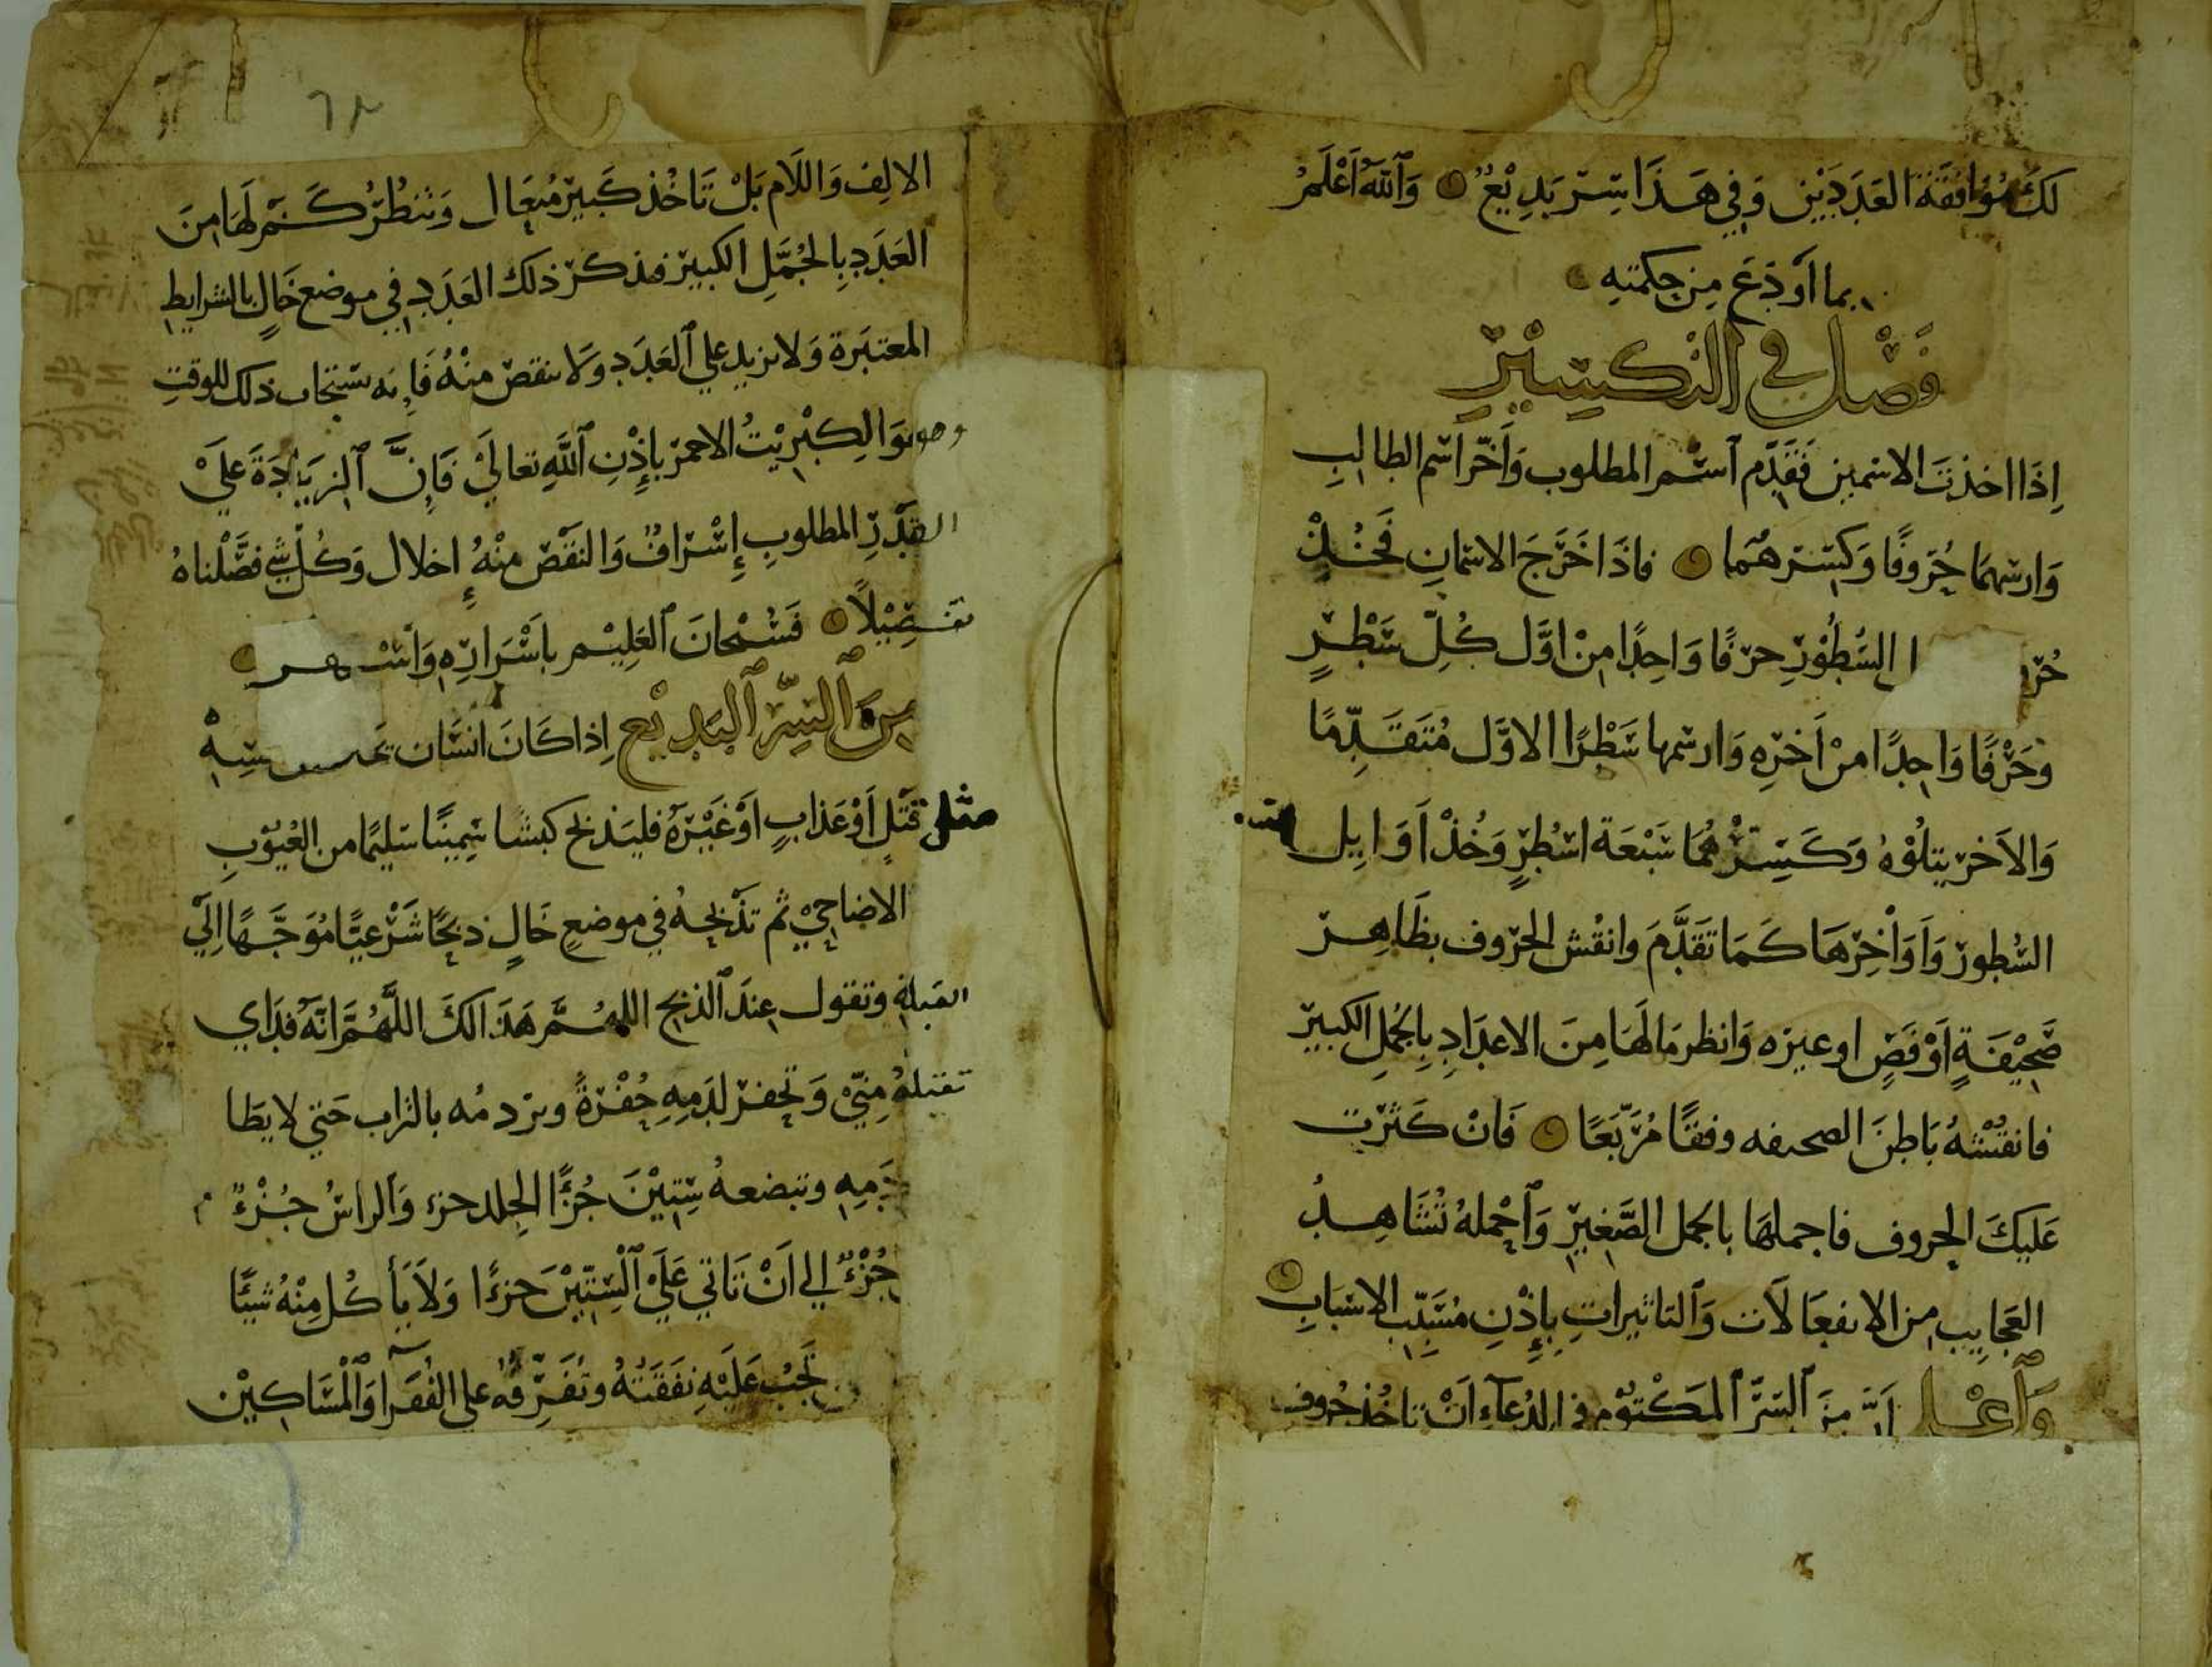 لَكَ مُوَافَقَةُ العَدَدَيْنِ وَفِي هَذَا سِرّ بَدِيْعٌ وَاللّٰهُ اَعْلَمُ
بما اَوْدَعَ مِن حِكمَتِهِ
فَصْل في التكسِيْرِ
اِذَا اخذتَ الاسمين فَقَدِّم اسْم المطلوب وَاَخّر اسْم الطالِبِ
وَارسمهمَا حُرُوفًا وَكَسِّرهُمَا فاذَا خَرَجَ الاسمَانِ فَخُذْ
السُّطُوْرِ حرْفًا وَاحِدًا مِنْ اوَّل كُلّ سَطْرٍ
وَحَرْفًا وَاحِدًا مِنْ اَخَرِهِ وَارسمها سَطْرًا الاوّل مُتَقَدِّمًا
وَالاَخر يتلُوْهُ وَكَسِّرْهُمَا سَبْعَة اسْطُرٍ وَخُذْ اَوَايِل
السُّطور وَاَوَاْخِرَهَا كَمَا تَقَدَّمَ وانقُش الحروف بظَاهِر
صَحِيْفَةٍ اَوْ فَصٍّ او غيره وَانظر مَا لَهَا مِنَ الاعدَادِ بِالجُملِ الكبير
فانقُشْهُ بَاطِنَ الصحيفه وفقًا مُرَبَّعًا فَانْ كَثرَت
عَلَيْكَ الحروف فاجملهَا بالجمل الصَّغِيْرِ وَاَجْملهُ تُشَاهِدُ
العَجايِب مِن الانفعَالاَت وَالتاثيراتِ بِإِذْنِ مُسَبِّبِ الاسْبَابِ
وَاعْلم اَنَّ مِنَ السِّرِّ المَكْتُوْمِ في الدُّعَآءِ اَنْ تاخُذ حُروف
الالِف وَاللَام بَلْ تَاخُذ كَبِيْر مُتعَال وَتنظُرُ كَم لَهَا مِنَ
العَدَدِ بِالجُمَّلِ الكبيْر فذكر ذلك العَدَد في موضع خَالٍ بالشرايط
المعتبَرة وَلا نزيد علي العَدَد وَلا ننقص مِنْهُ فَاِنه يستجاب ذلك للوقتِ
وهو الكِبْرِيْتُ الاحمر بإِذْنِ اللّٰهِ تعالَيْ فَاِنَّ الزيَادَةَ علَيْ
القَدْرِ المطلوبِ إِسْرَافٌ وَالنقْصَ مِنْهُ إخلال وَكُلّ شي فصَّلْناهُ
تفصِيْلاً فَسُبْحَانَ العَلِيْم باَسْرَارِه
مِنَ السِّرِّ البَدِيْع اِذا كَانَ انسَان
مثل قَتْلٍ اَوْ عَذابٍ اَوْ غَيْرَهُ فليَذبح كبشا سَمِيْنًا سَليمًا من العُيُوْبِ
الاضاحِيْ ثم تَذْبحهُ في موضعِ خَالٍ ذبحًا شَرْعيًا مُوَجَّهًا اِلَيْ
القبلة وتقول عِندَ الذبح اللهُمَّ هَذَا لكَ اللَّهُمَّ انّهُ فدَاي
تقبلهُ مِنِّيْ وَتحفر لدَمِهِ حُفْرَةً وتردمُه بالتراب حَتي لا يطَا
دَمِهِ وتبضعهُ سِتِيْنَ جُزءًا الجِلد جزء وَالراسُ جُزْءٌ
جُزْءٌ الي اَنْ تَاتي عَلَيْ السِّتِيْنَ جزءًا وَلاَ يَأكُل مِنْهُ شيئًا
تَجِبُ عَلَيْهِ نفَقَتهُ وتُفَرِّقهُ علي الفُقَرآ وَالْمسَاكِيْن